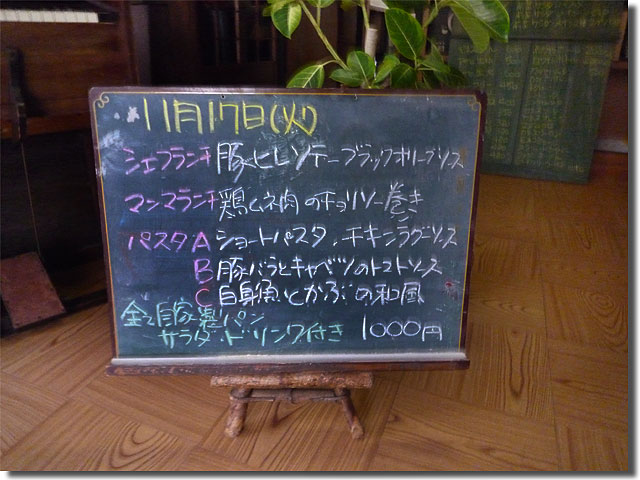 11月17日(火)
シェフランチ 豚ヒレソテーブラックオリーブソース
マンマランチ 鶏ムネ肉のチョリソー巻き
パスタ A ショートパスタ、チキンラグーソース
B 豚バラとキャベツのトマトソース
C 白身魚とかぶの和風
全て自家製パン
サラダ・ドリンク付き 1000円